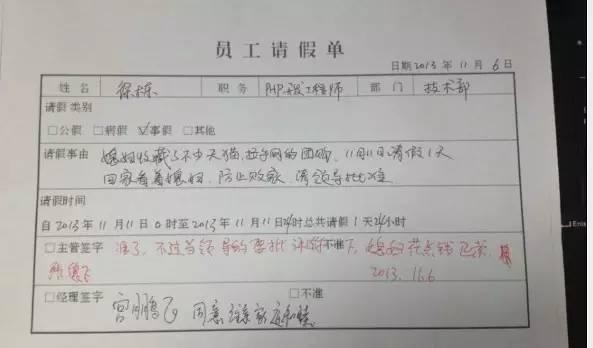 员工请假单
日期 2013 年 11 月 6 日
姓名 徐栋 职务 PHP开发工程师 部门 技术部
请假类别
□公假 □病假 ☑事假 □其他
请假事由 媳妇收藏了不少天猫、拉手网的团购,11月11日请假1天
回家看着媳妇,防止败家,请领导批准
请假时间
自 2013 年 11 月 11 日 0 时至 2013 年 11 月 11 日 24 时总共请假 1 天 24 小时
□主管签字 准了,不过当领导的要批评 □不准 下,媳妇花点钱
2013.11.6
□经理签字 □不准
宫鹏飞 同意 家庭和睦
Enter